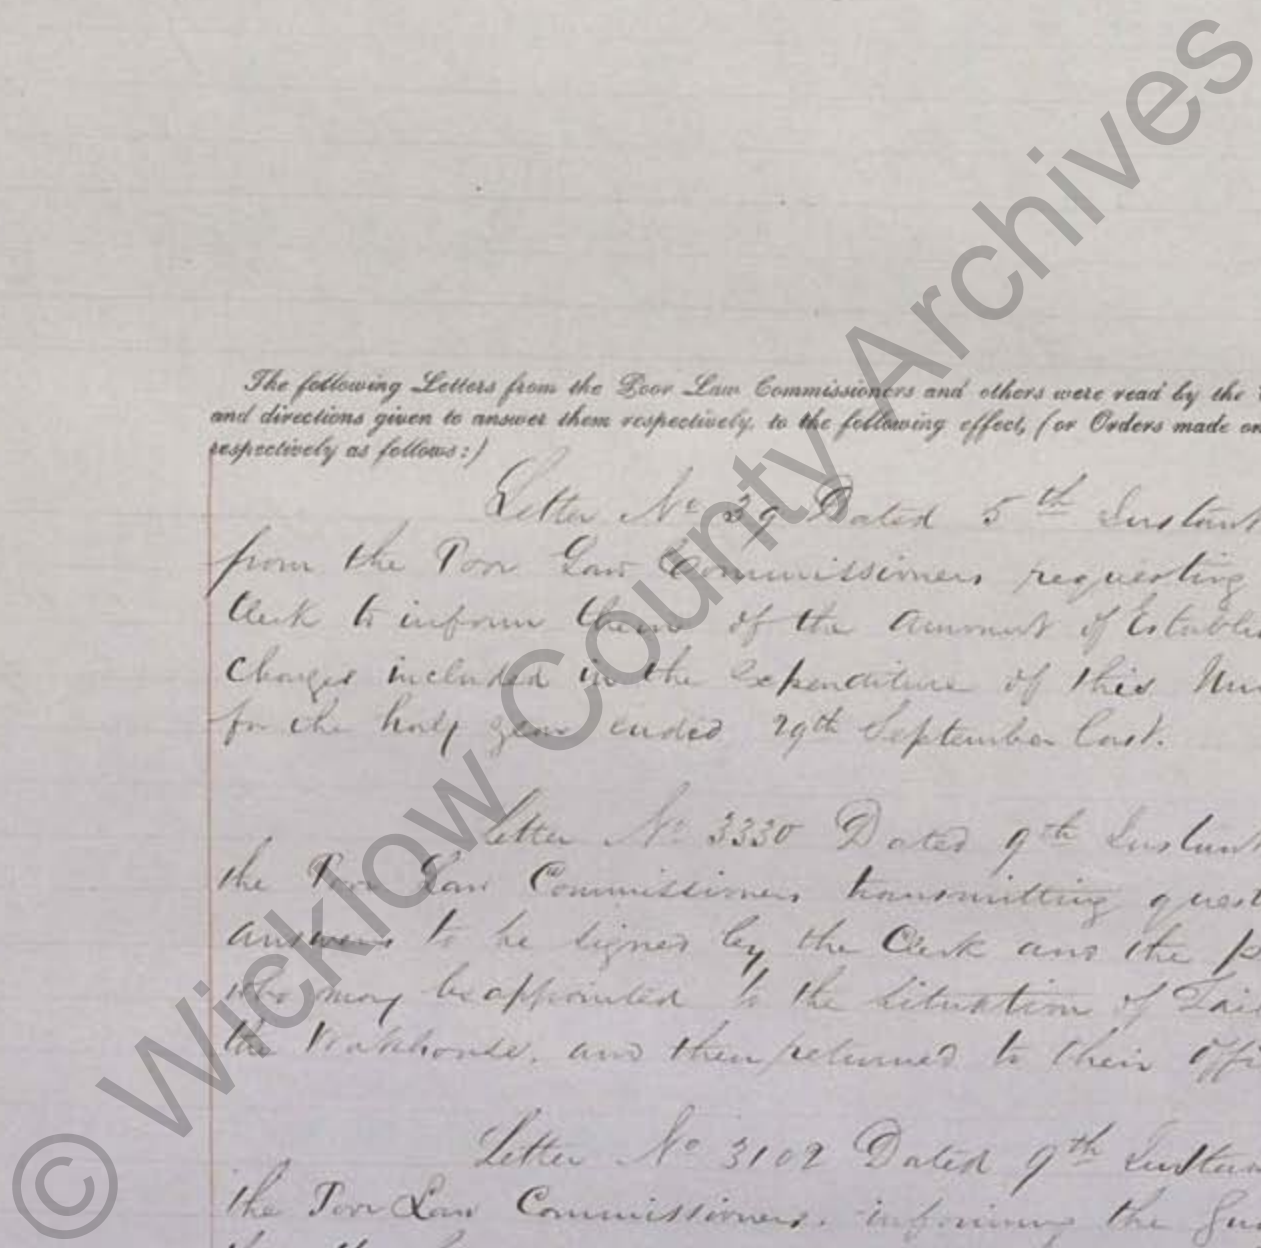 The following Letters from the Poor Law Commissioners and others were read by the
and directions given to answer them respectively, to the following effect, (or Orders made on
respectively as follows:)
Letter No 39 Dated 5th Instant
from the Poor Law Commissioners requesting
Clerk to inform them of the Amount of Establi
Charges included in the Expenditure of this
for the half year ended 29th September last.
Letter No 3330 Dated 9th Instant
the Poor Law Commissioners transmitting quest
answers to be signed by the Clerk and the
who may be appointed to the Situation of
the Workhouse, and then returned to their offi
Letter No 3102 Dated 9th Instan
the Poor Law Commissioners. informing the Gu
© Wicklow County Archives